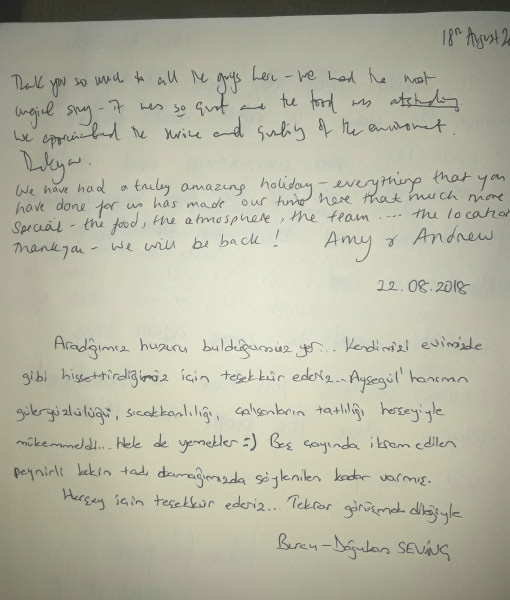 18th August 20
Thank you so much to all the guys here - we had the most
magical stay - it was so quiet and the food was astounding.
We appreciated the service and quality of the environment.
Thank you.
We have had a truly amazing holiday - everything that you
have done for us has made our time here that much more
special - the food, the atmosphere, the team .... the location
Thank you - we will be back! Amy & Andrew
22.08.2018
Aradığımız huzuru bulduğumuz yer... Kendimizi evimizde
gibi hissettirdiğiniz için teşekkür ederiz... Ayşegül hanımın
güleryüzlülüğü, sıcakkanlılığı, çalışanların tatlılığı herşeyiyle
mükemmeldi... Hele de yemekler =) Beş çayında ikram edilen
peynirli kekin tadı damağımızda söylenilen kadar varmış.
Herşey için teşekkür ederiz... Tekrar görüşmek dileğiyle
Burcu - Doğukan SEVİNÇ